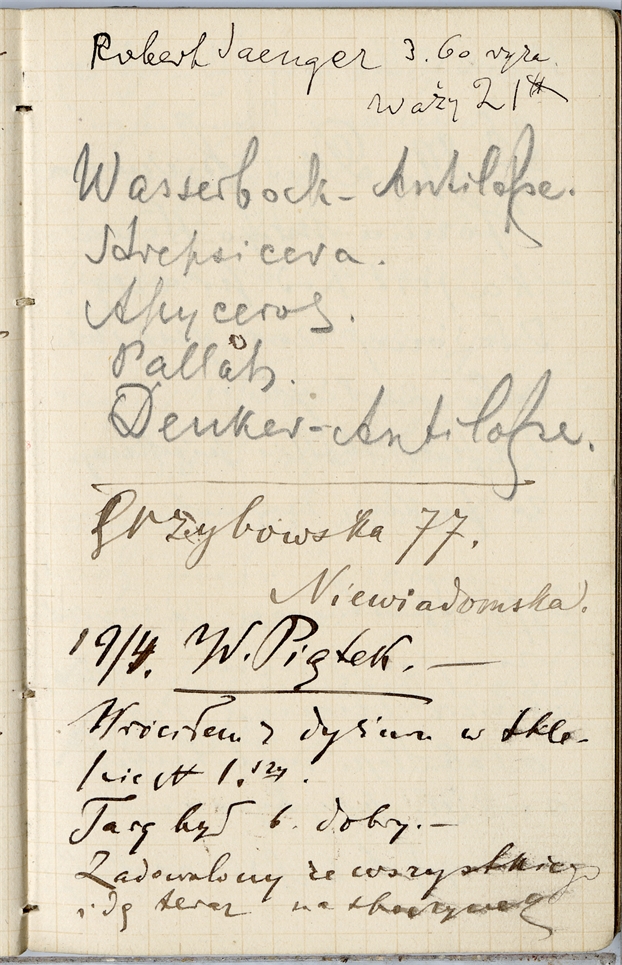 Robert Saenger 3.60 
waży 21 ℔
Wasserbock-Antilope.
Strepsicera.
Apyceros.
Pallah.
Denker-Antilope.
Grzybowska 77.
Niewiadomska.
19/4. W. Piątek. —
Wróciłem z w skle-
Targ był b. dobry. —
Zadowolony ze wszystkiego
idę teraz na